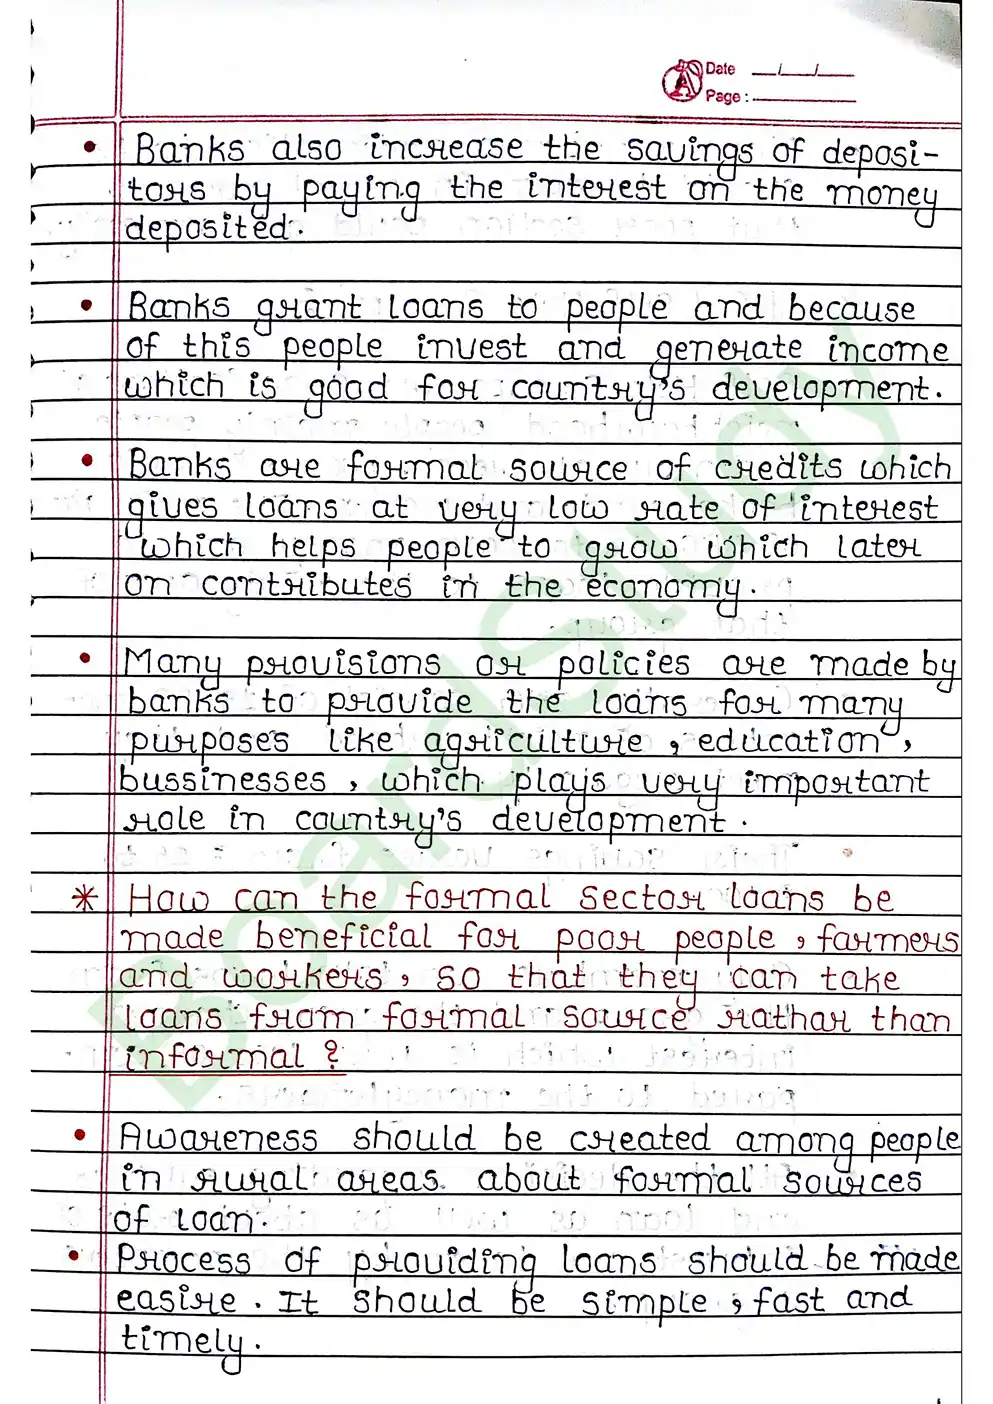 Date __/__/__
Page : ______
• Banks also increase the savings of deposi-
tors by paying the interest on the money
deposited.
• Banks grant loans to people and because
of this people invest and generate income
which is good for country's development.
• Banks are formal source of credits which
gives loans at very low rate of interest
which helps people to grow which later
on contributes in the economy.
• Many provisions or policies are made by
banks to provide the loans for many
purposes like agriculture, education,
bussinesses, which plays very important
role in country's development.
* How can the formal sector loans be
made beneficial for poor people, farmers
and workers, so that they can take
loans from formal source rathar than
informal?
• Awareness should be created among people
in rural areas about formal sources
of loan.
• Process of providing loans should be made
easire. It should be simple, fast and
timely.
BoardStudy